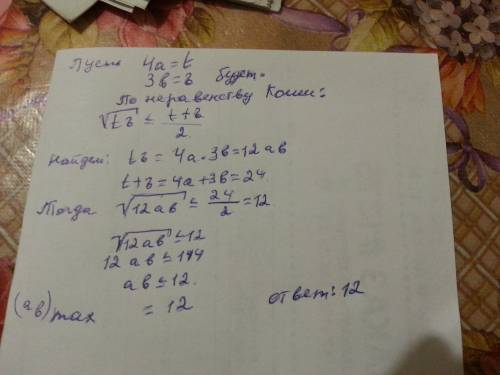 Пусть 4a=t
3b=z будет.
По неравенству Коши:
√tz ≤ (t+z)/2
Найдем: tz = 4a·3b=12ab
t+z=4a+3b=24
Тогда √12ab ≤ 24/2 = 12
√12ab ≤ 12
12ab ≤ 144
ab ≤ 12.
(ab)max = 12
ответ: 12